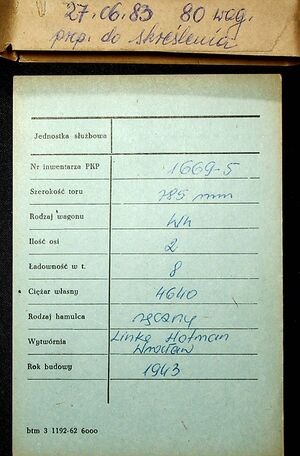 27.06.83 80 wag.
prop. do skreślenia
Jednostka służbowa
Nr inwentarza PKP 1669-5
Szerokość toru 785 mm
Rodzaj wagonu Wh
Ilość osi 2
Ładowność w t. 8
Ciężar własny 4640
Rodzaj hamulca ręczny
Wytwórnia Linke Hofman
Wrocław
Rok budowy 1943
btm 3 1192-62 6000